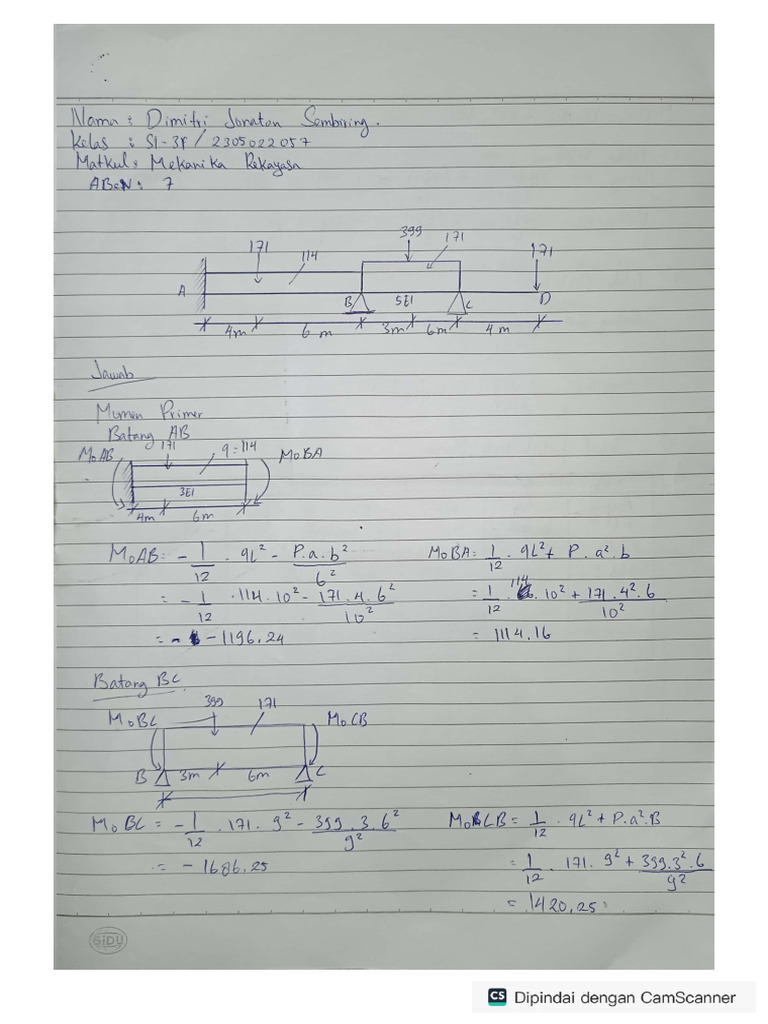 Nama : Dimitri Jonatan Sembiring.
Kelas : SI-3F / 2305022057
Matkul : Mekanika Rekayasa
ABSEN : 7
399
171 114 171 171
A B 5EI C D
4m 6 m 3m 6m 4 m
Jawab
Momen Primer
Batang AB
M₀AB 171 q = 114 M₀BA
3EI
4m 6m
M₀AB = - 1/12 . qL² - P.a.b²/6² M₀BA = 1/12 . qL² + P.a².b
= - 1/12 . 114 . 10² - 171.4.6²/10² = 1/12 . 114 . 10² + 171.4².6/10²
= - 1196.24 = 1114.16
Batang BC
399 171
M₀BC M₀CB
B 3m 6m C
M₀BC = - 1/12 . 171 . 9² - 399.3.6²/9² M₀CB = 1/12 . qL² + P.a².B
= - 1686.25 = 1/12 . 171 . 9² + 399.3².6/9²
= 1420,25
SiDU
CS Dipindai dengan CamScanner